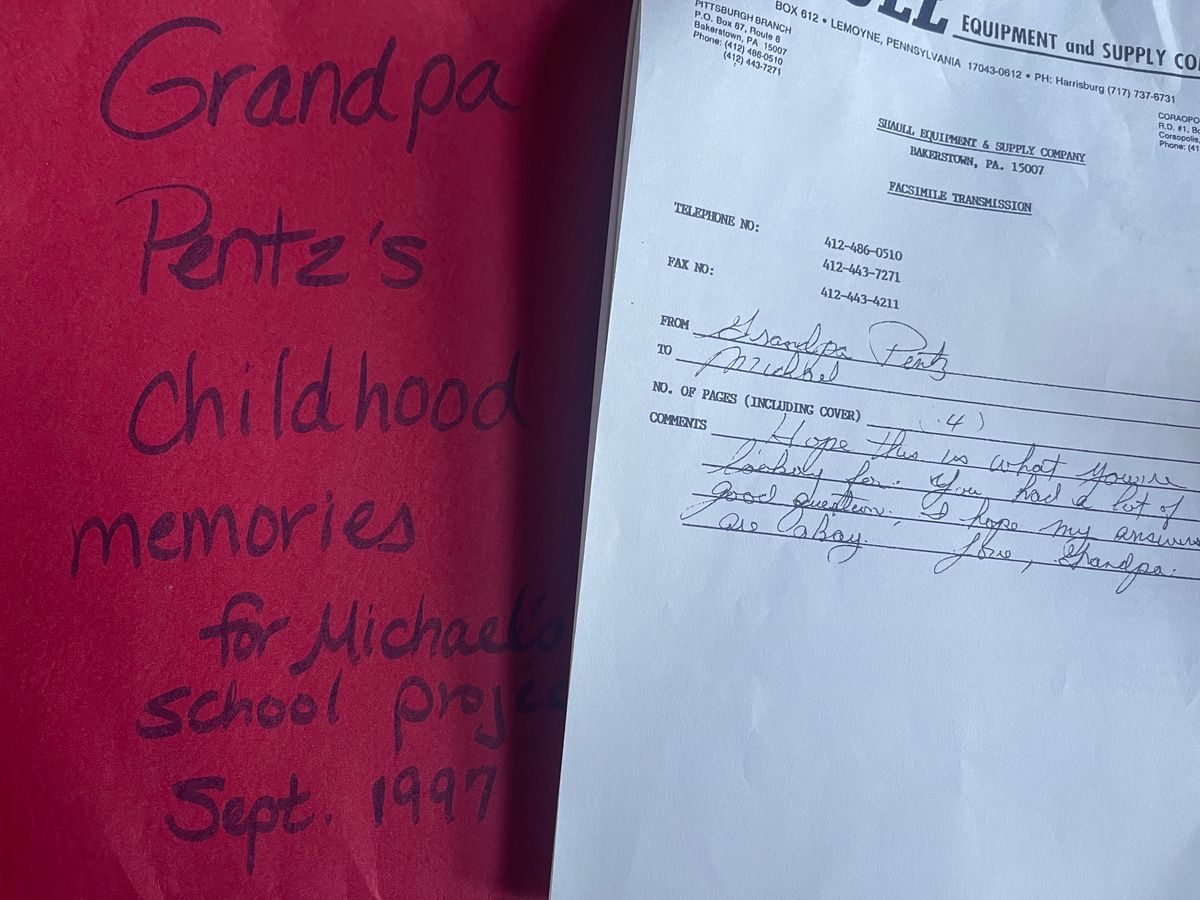 Grandpa
Pentz's
childhood
memories
for Michael's
school
Sept. 1997
EQUIPMENT and SUPPLY
BOX 612 • LEMOYNE, PENNSYLVANIA 17043-0612 • PH: Harrisburg (717) 737-6731
PITTSBURGH BRANCH
P.O. Box 67, Route 8
Bakerstown, PA 15007
Phone: (412) 486-0510
(412) 443-7271
R.D. #1,
Coraopolis,
Phone:
SHAULL EQUIPMENT & SUPPLY COMPANY
BAKERSTOWN, PA. 15007
FACSIMILE TRANSMISSION
TELEPHONE NO:
412-486-0510
412-443-7271
FAX NO:
412-443-4211
FROM Grandpa Pentz
TO Michael
NO. OF PAGES (INCLUDING COVER) (4)
COMMENTS Hope this is what you're
looking for. You had a lot of
good question. I hope my answers
are okay. Love, Grandpa.